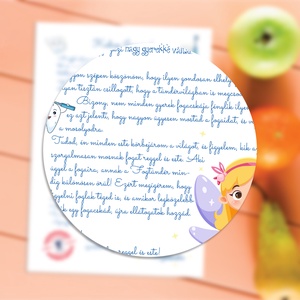 igazi nagy gyerekké válni
nagyon szépen köszönöm, hogy ilyen gondosan elhely
lyen tisztán csillogott, hogy a tündérvilágban is megcso
Bizony, nem minden gyerek fogacskája fénylik ilyen
ez azt jelenti, hogy nagyon ügyesen mostad a fogaidat, és
a mosolyodra.
Tudod, én minden este körbejárom a világot, és figyelem, kik a
szorgalmasan mossák fogat reggel és este. Aki
ggel a fogaira, annak a Fogtündér min-
dig különösen örül! Ezért megígérem, hogy
gyelni foglak téged is, és amikor legközelebb
ik egy fogacskád, újra ellátogatok hozzád.
reggel és este!